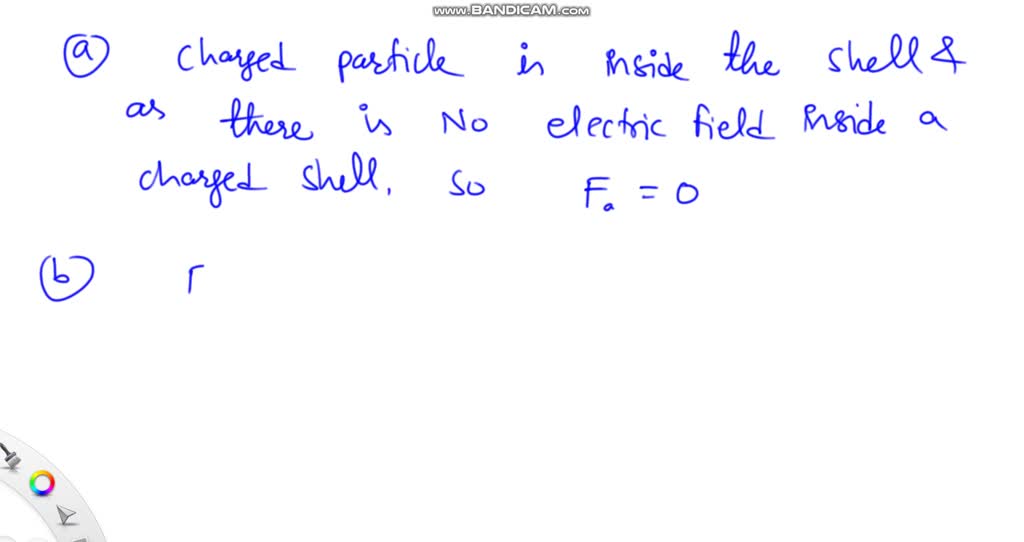 www.BANDICAM.com
(a) charged particle in inside the shell &
as there is No electric field inside a
charged shell. so Fa = 0
(b)